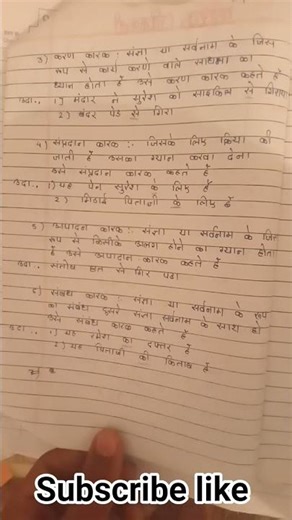 3) करण कारक : संज्ञा या सर्वनाम के जिस
रूप से कार्य करणे वाले साधनका का
ध्यान होता हैं उसे करण कारक कहते हैं
1) मंदार ने सुरेश को साइकिल से गिराया
2) बंदर पेड से गिरा
4) संप्रदान कारक :- जिसके लिए क्रिया की
जाती हैं उसका ध्यान करवा देना
उसे संप्रदान कारक कहते हैं
उदा., 1) यह पेन सुरेश के लिए हैं
2) मिठाई पिताजी के लिए हैं
5) अपादान कारक :- संज्ञा या सर्वनाम के जिस
रूप से किसीके अलग होने का ध्यान होता
हैं उसे अपादान कारक कहते हैं
उदा., संतोष छत से गिर पडा
6) संबंध कारक : संज्ञा या सर्वनाम के रूप
का संबंध दुसरे संज्ञा सर्वनाम के साथ हो
उसे संबंध कारक कहते हैं
उदा., 1) यह रमेश का दफ्तर हैं
2) यह पिताजी की किताब हैं
Subscribe like